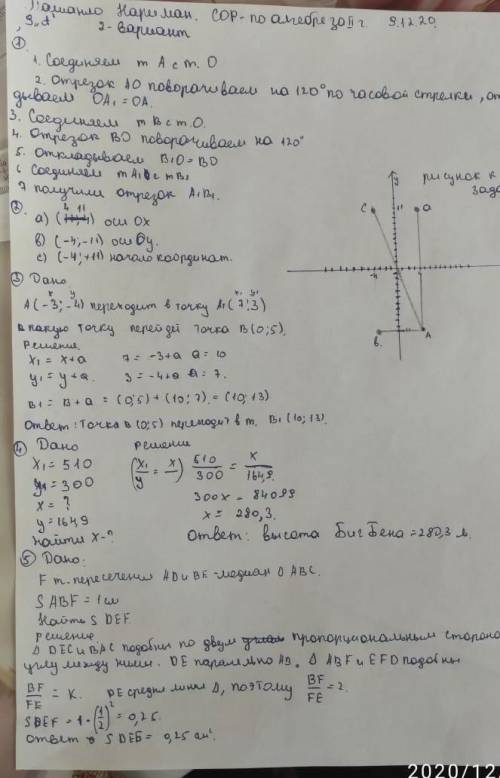 Нариман. СОР-по алгебре за II г. 9.12.20.
2-вариант
①
1. Соединяю т A с т. O
2. Отрезок AO поворачиваем на 120° по часовой стрелки, от
дываем OA₁ = OA.
3. Соединяем т B с т. O.
4. Отрезок BO поворачиваем на 120°
5. Откладываем B₁O = BO
6 Соединяем т A₁ с т B₁
7 получили отрезок A₁B₁.
рисунок к
зада
②
а) (4 11) оси Ox
в) (-4; -11) оси Oy.
с) (-4; +11) начало координат.
y
C
11
a
-4
в.
A
③ Дано
x y x₁ y₁
A (-3; -4) переходит в точку A₁ (7; 3)
в какую точку перейдёт точка B (0; 5).
Решение
x₁ = x + a 7 = -3 + a a = 10
y₁ = y + a. 3 = -4 + a a = 7.
B₁ = B + a = (0; 5) + (10; 7) = (10; 13)
Ответ: Точка в (0; 5) переходит в т. B₁ (10; 13).
④ Дано Решение
x₁ = 510 (x₁/y = x/) 510/300 = x/164,9
y₁ = 300 300x = 84099
x = ? x = 280,3.
y = 164,9
найти x-? Ответ: высота Биг Бена = 280,3 м.
⑤ Дано:
F т. пересечения AD и BE - медиан Δ ABC.
S ABF = 1 см
Найти S DEF
решение
Δ DEC и BAC подобны по двум пропорциональным сторона
углу между ними. DE паралельно AB. Δ ABF и EFD подобны
BF/FE = K. DE средня линия Δ, поэтому BF/FE = 2.
SDEF = 1 · (1/2)² = 0,25.
Ответ S DEF = 0,25 см².
2020/12